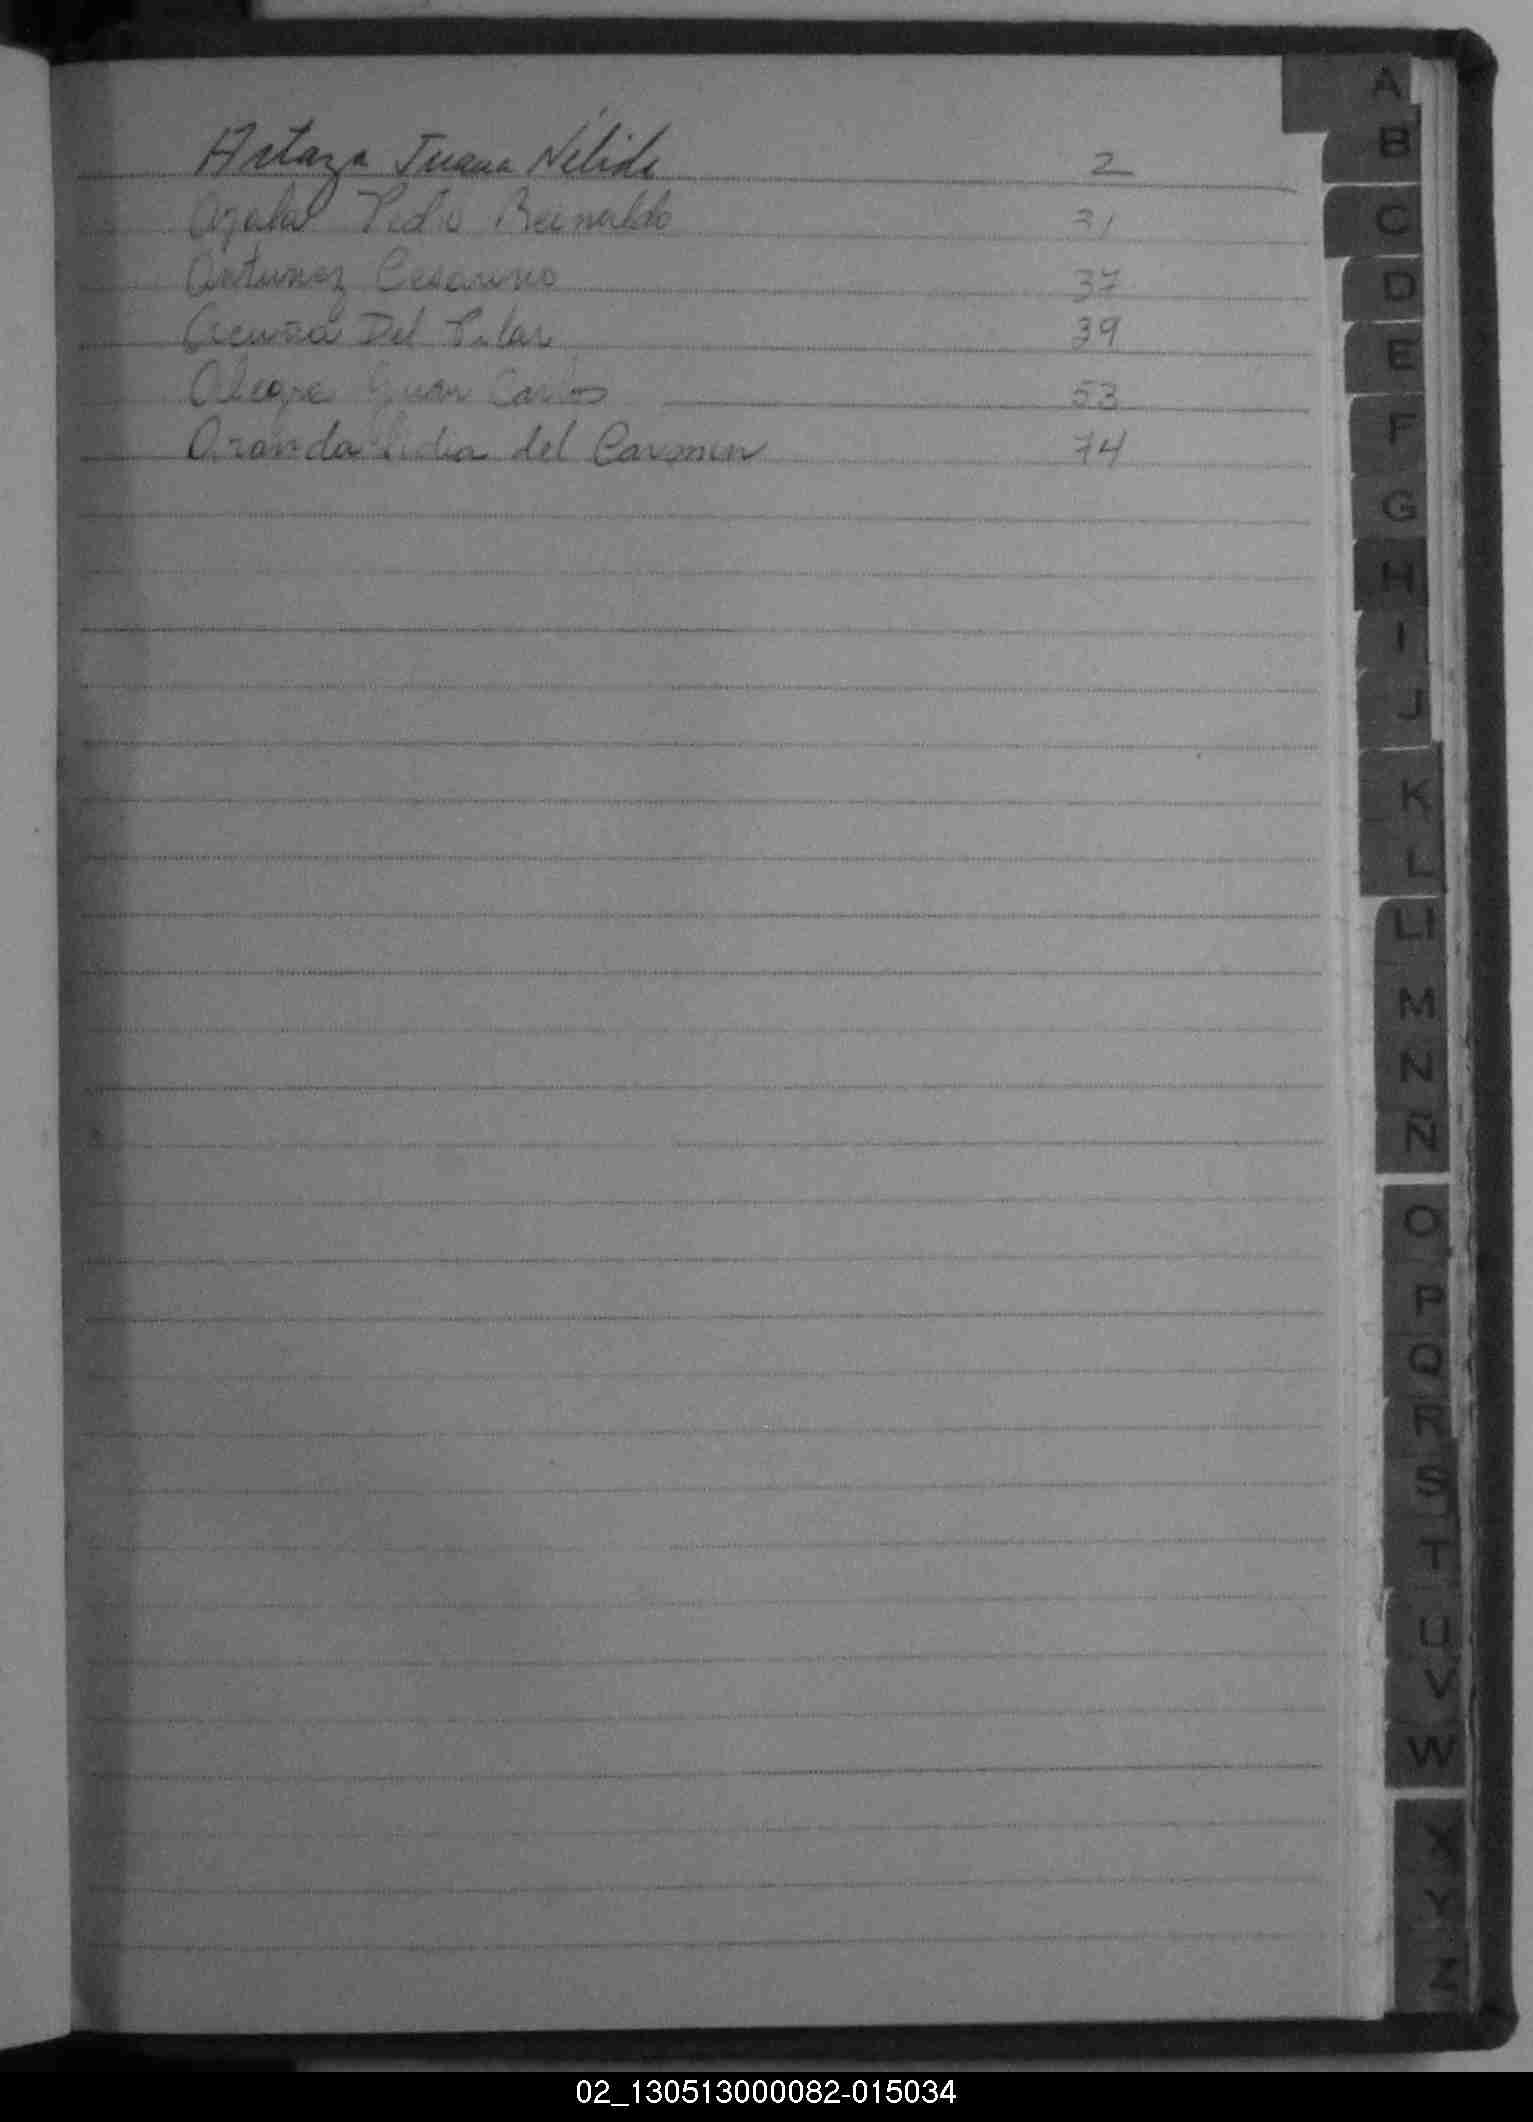 Artaza Juana Nélida 2
Ayala Pedro Reinaldo 31
Antunez Cesarino 37
Acuña Del Pilar 39
Alegre Juan Carlos 53
Aranda Lidia del Carmen 74
A
B
C
D
E
F
G
H
I
J
K
L
Ll
M
N
Ñ
O
P
Q
R
S
T
U
V
W
X
Y
Z
02_130513000082-015034